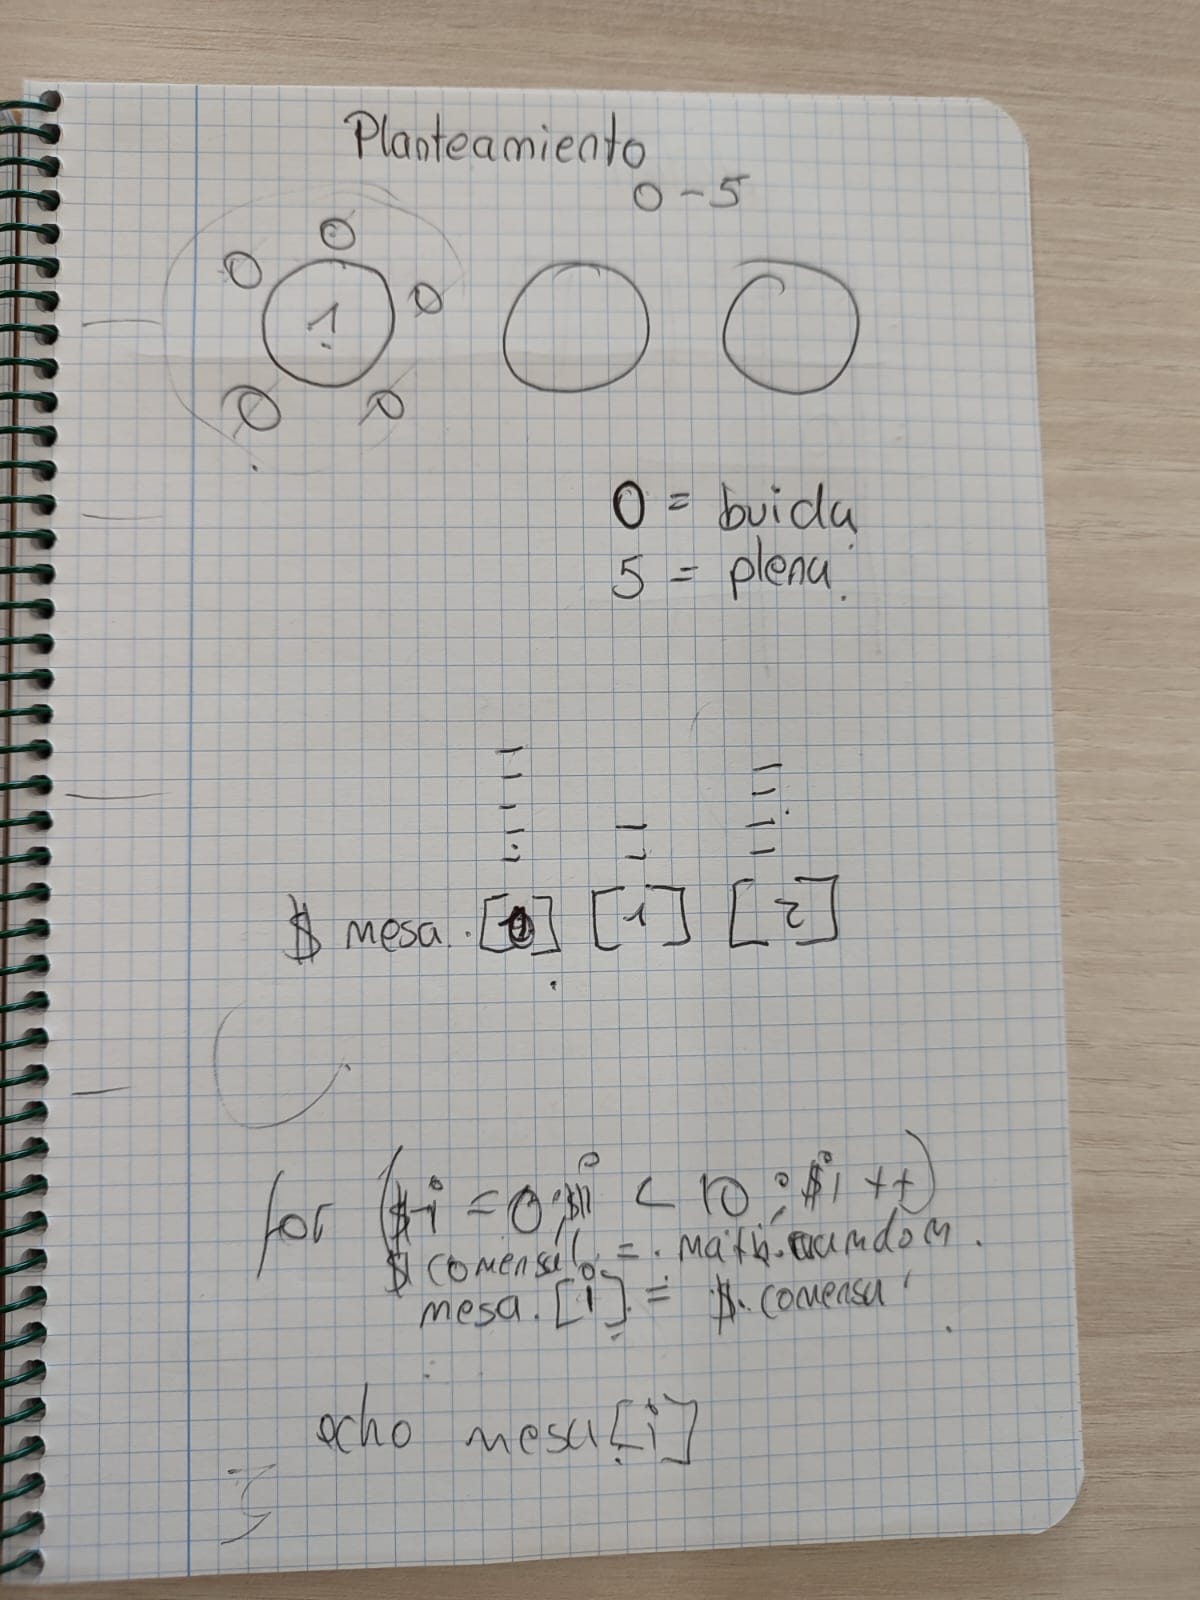 Planteamiento
0 - 5
1
0 = buida
5 = plena.
$ mesa. [0] [1] [2]
for ($i = 0; $i < 10; $i ++)
$ comensal = math.random.
mesa. [i] = $. comensa
echo mesa[i]